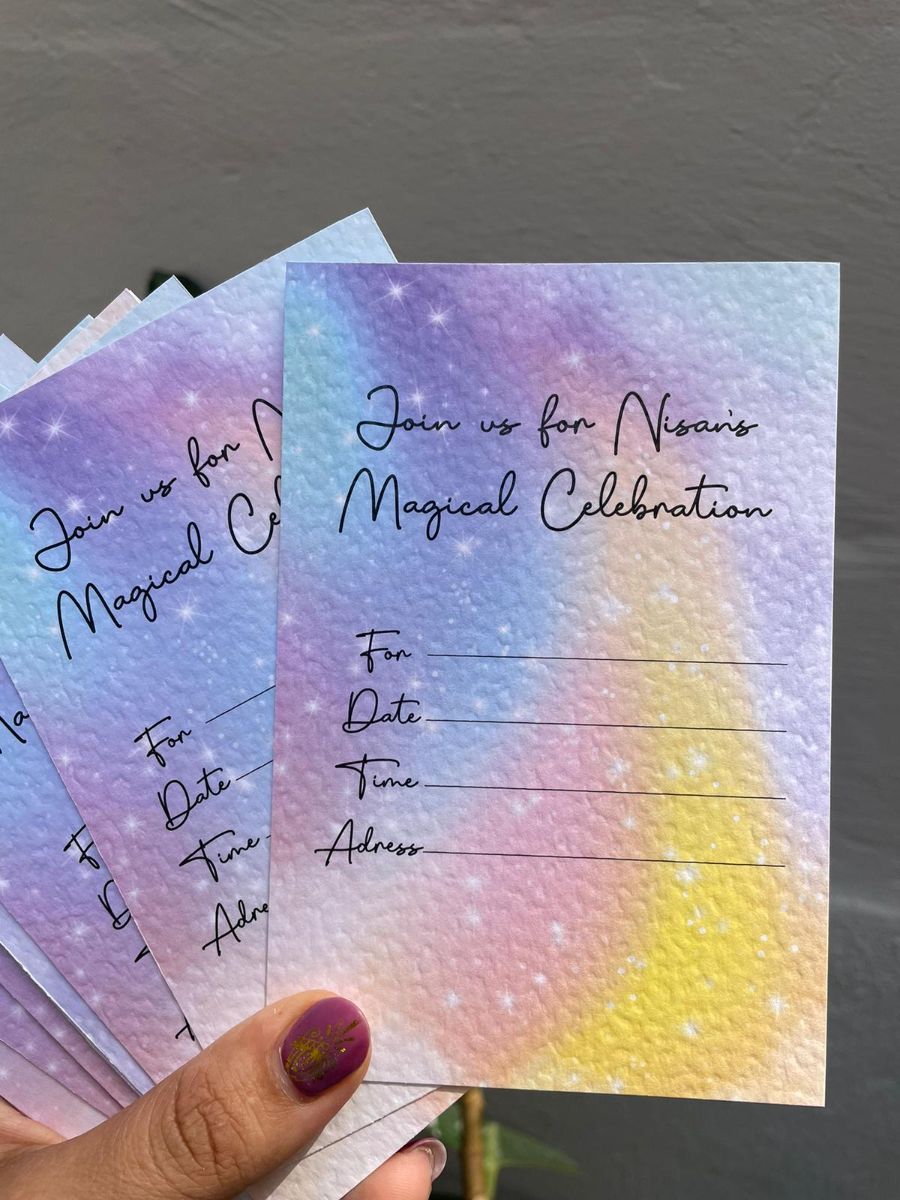 Join us for Nisan's
Magical Celebration
For
Date
Time
Adress
Join us for N
Magical Ce
For
Date
Time
Adre
Ma
F
D
T